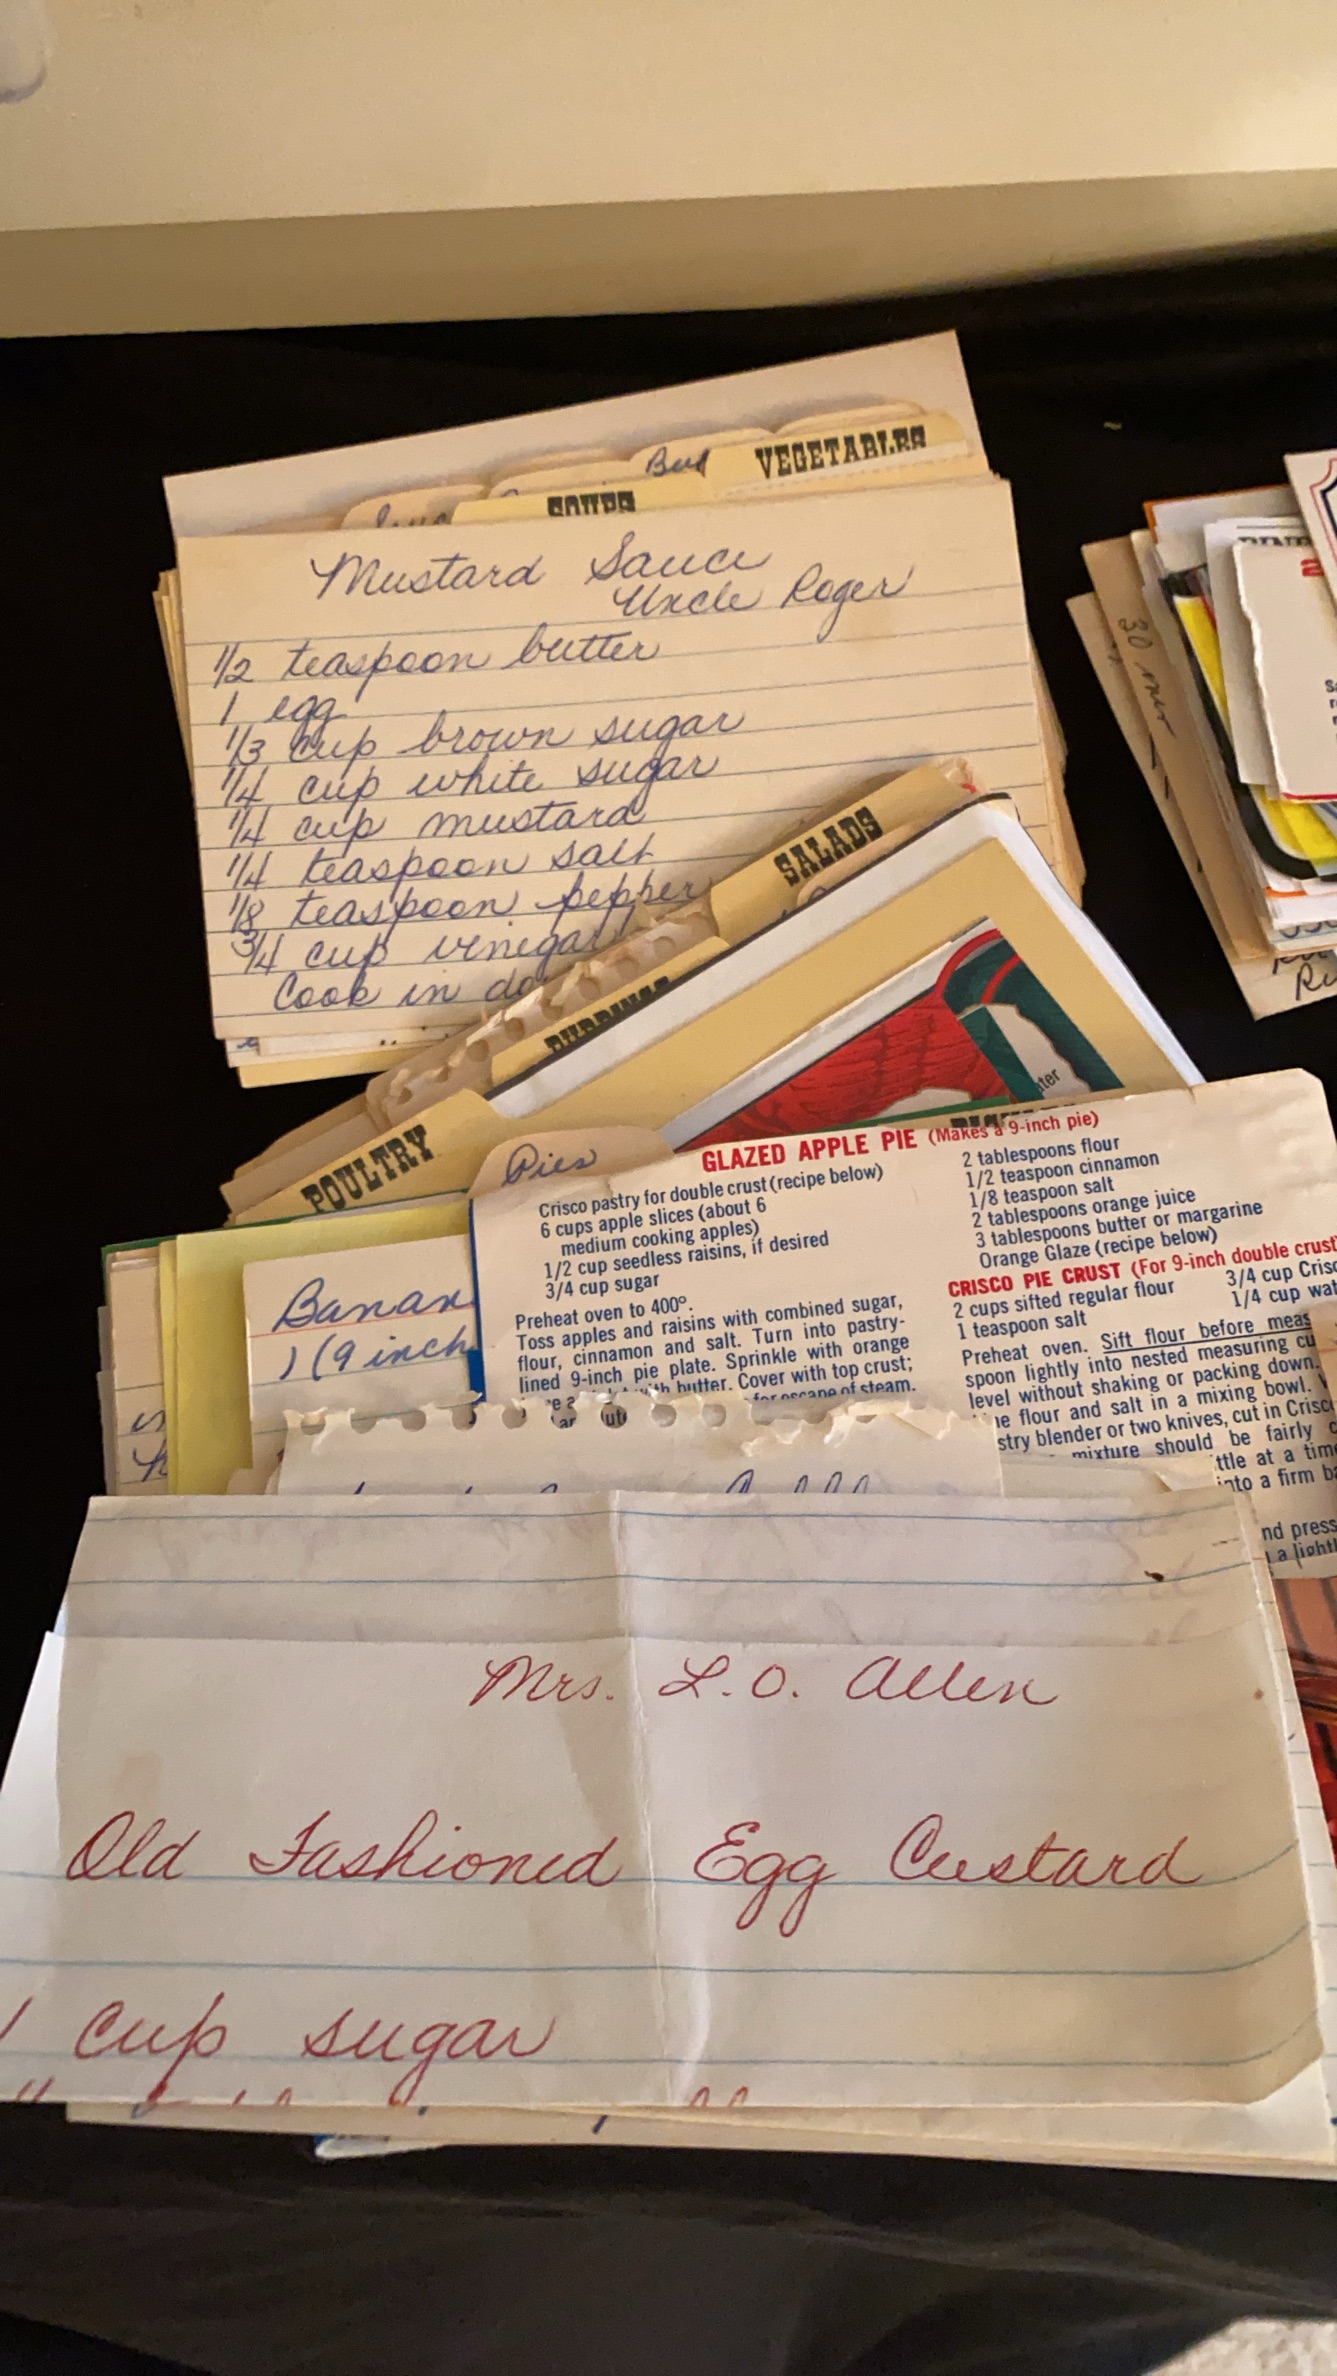 VEGETABLES
SOUPS
Mustard Sauce
Uncle Roger
1/2 teaspoon butter
1 egg
1/3 cup brown sugar
1/4 cup white sugar
1/4 cup mustard
1/4 teaspoon salt
1/8 teaspoon pepper
3/4 cup vinegar
Cook in do
SALADS
PUDDINGS
POULTRY
30
Pies
GLAZED APPLE PIE (Makes a 9-inch pie)
Crisco pastry for double crust (recipe below)
6 cups apple slices (about 6
medium cooking apples)
1/2 cup seedless raisins, if desired
3/4 cup sugar
2 tablespoons flour
1/2 teaspoon cinnamon
1/8 teaspoon salt
2 tablespoons orange juice
3 tablespoons butter or margarine
Orange Glaze (recipe below)
Preheat oven to 400°.
Toss apples and raisins with combined sugar,
flour, cinnamon and salt. Turn into pastry-
lined 9-inch pie plate. Sprinkle with orange
with butter. Cover with top crust;
for escape of steam.
CRISCO PIE CRUST (For 9-inch double crust
2 cups sifted regular flour
1 teaspoon salt
3/4 cup Crisc
1/4 cup wat
Preheat oven. Sift flour before meas
spoon lightly into nested measuring cu
level without shaking or packing down.
ne flour and salt in a mixing bowl.
stry blender or two knives, cut in Crisc
mixture should be fairly c
ttle at a tim
into a firm ba
nd press
a light
Banan
1 (9 inch
Mrs. L.O. Allen
Old Fashioned Egg Custard
1 cup sugar